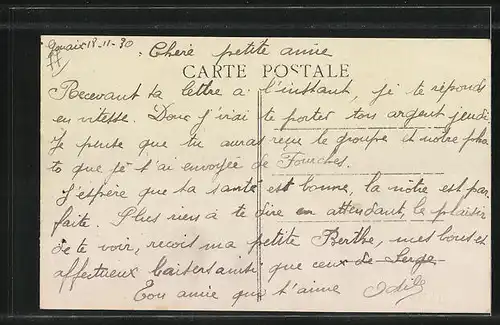 18-11-30
Chère petite amie
CARTE POSTALE
Recevant ta lettre à l'instant, je te réponds
en vitesse. Donc j'irai te porter ton argent jeudi
Je pense que tu auras reçu le groupe et notre pho
to que je t'ai envoyée de Fourches.
J'espère que ta santé est bonne, la nôtre est par
faite. Plus rien à te dire en attendant, le plaisir
de te voir, reçois ma petite Berthe, mes bons et
affectueux baisers ainsi que ceux de Serge
Ton amie qui t'aime Odile